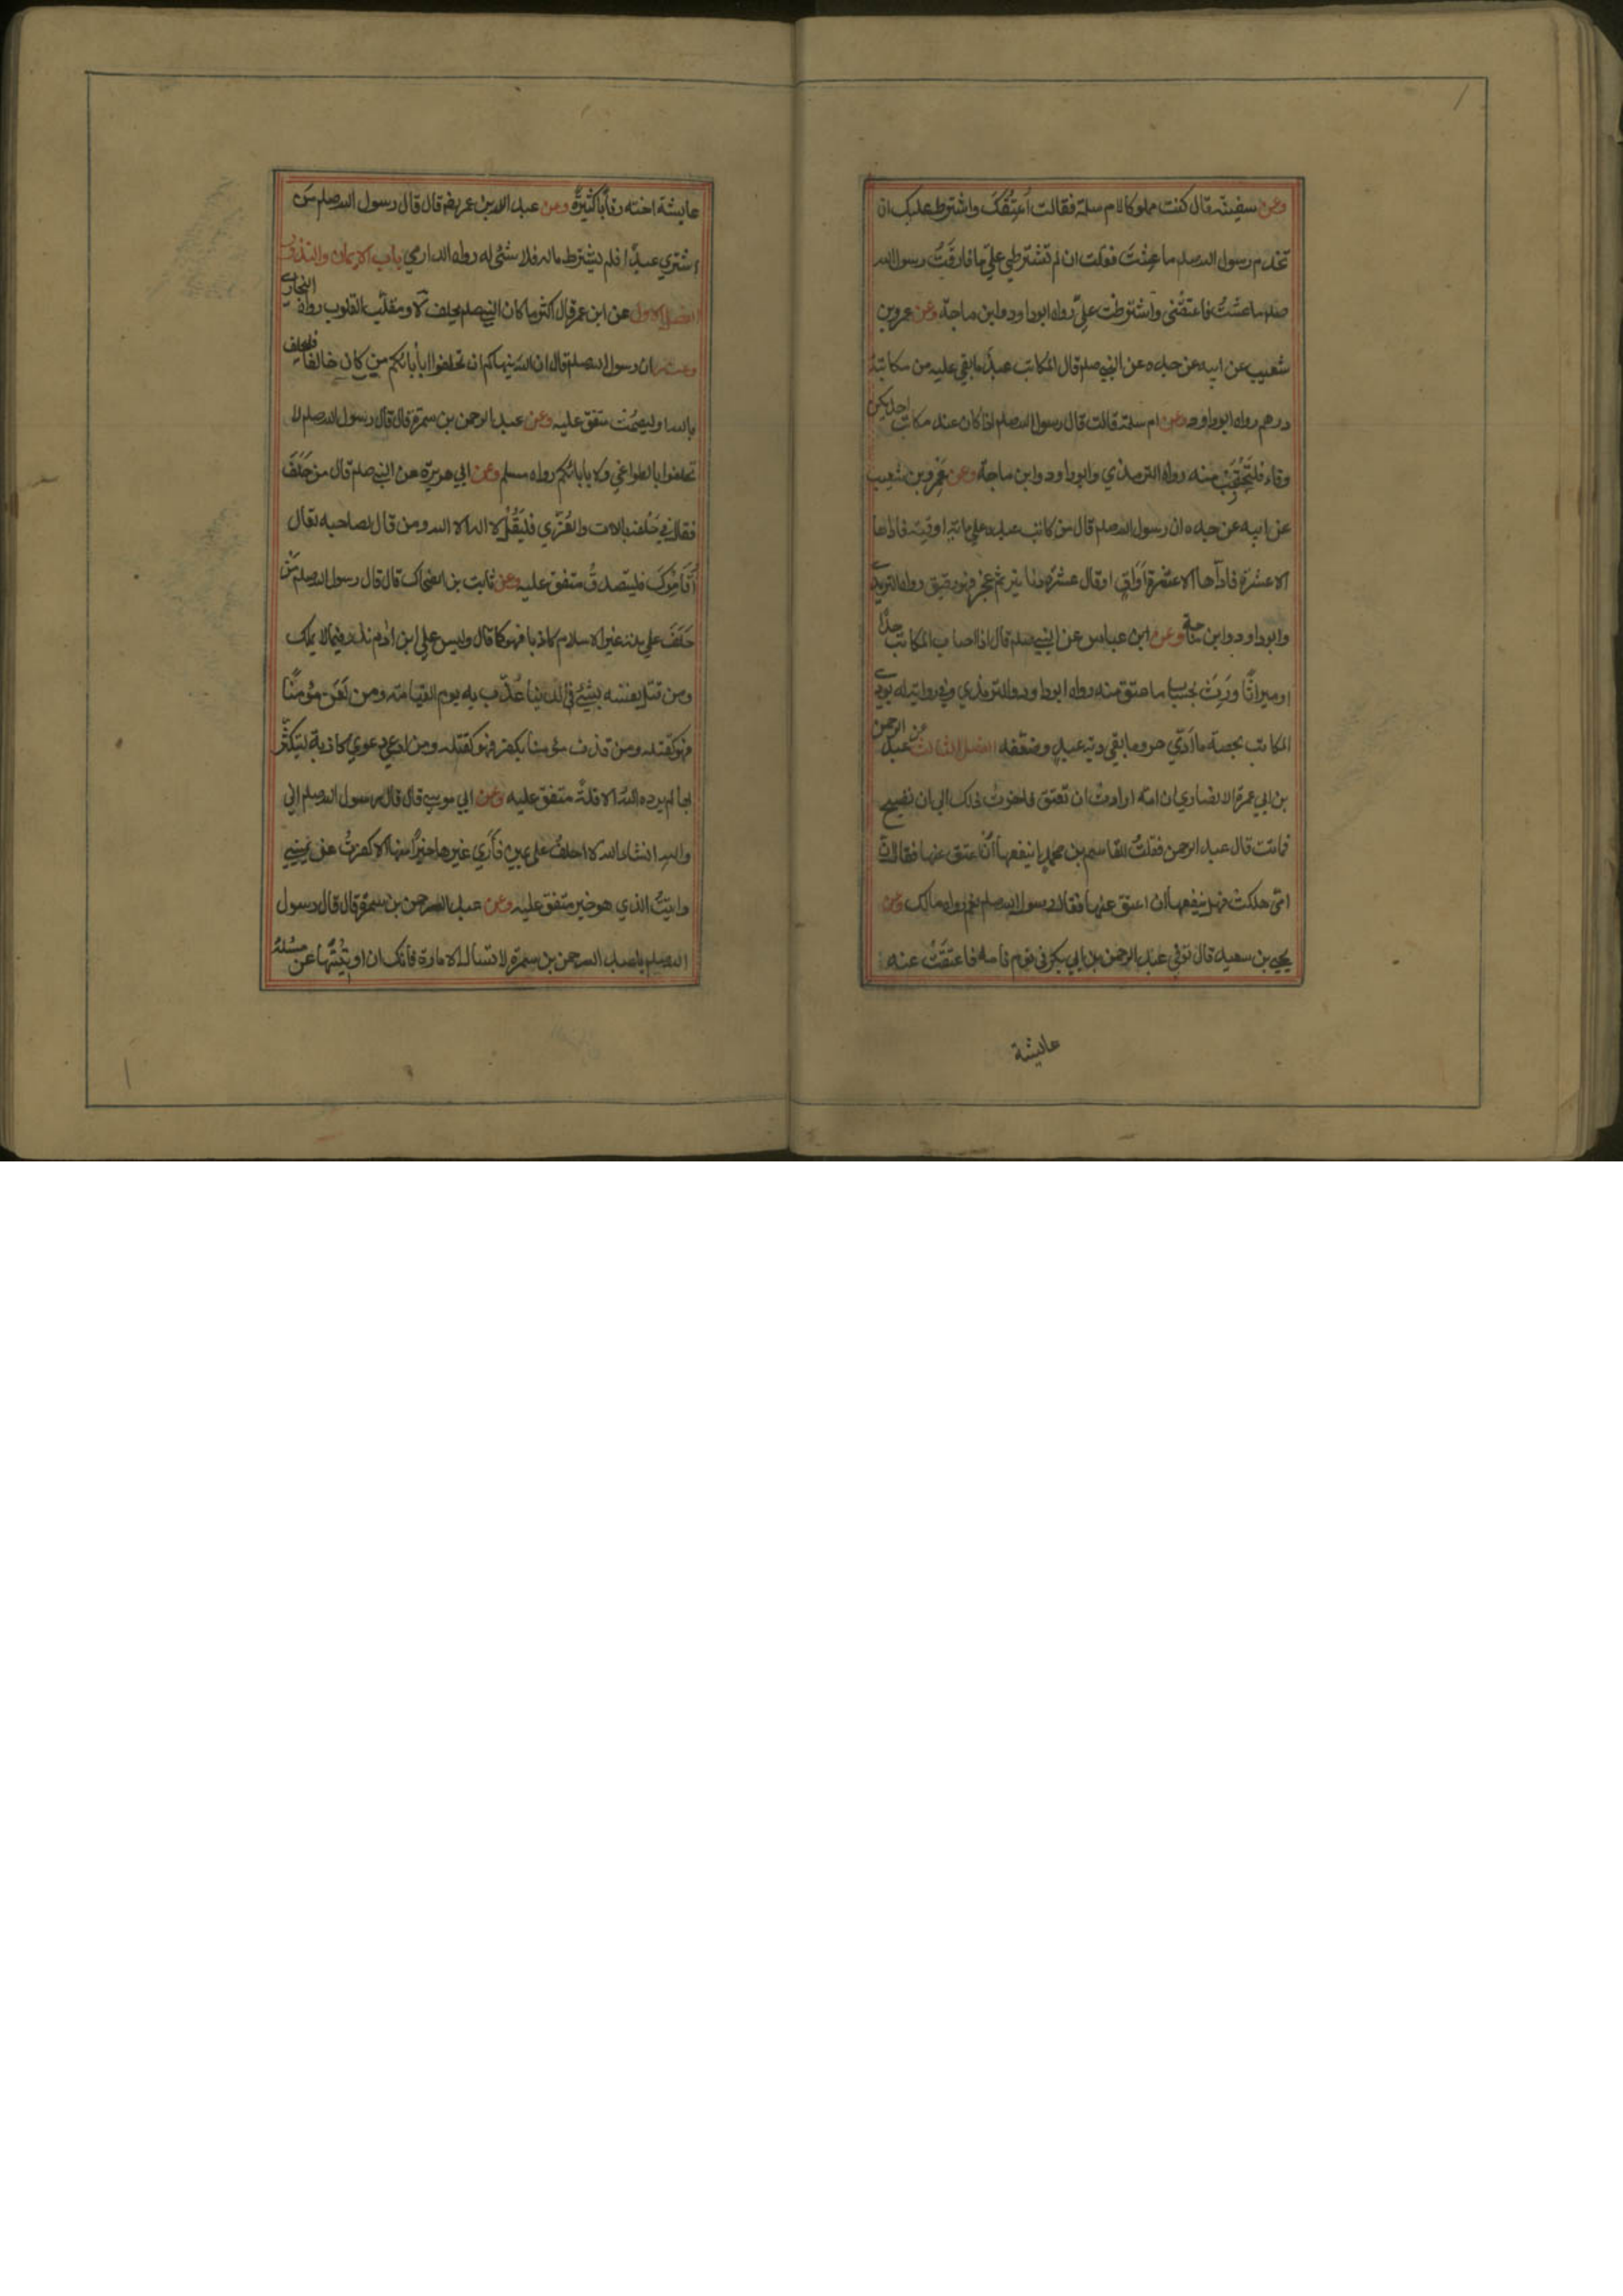 وعن سفينة قال كنت مملوكا لام سلمة فقالت أعتقك واشترط عليك ان
تخدم رسول الله صلعم ما عشت فقلت ان لم تشترطي علي ما فارقت رسول الله
صلعم ما عشت فاعتقتني واشترطت علي رواه ابوداود وابن ماجة وعن عمرو بن
شعيب عن ابيه عن جده عن النبي صلعم قال المكاتب عبد ما بقي عليه من مكاتبته
درهم رواه ابوداود وعن ام سلمة قالت قال رسول الله صلعم اذا كان عند مكاتب احديكن
وفاء فلتحتجب منه رواه الترمذي وابوداود وابن ماجة وعن عمرو بن شعيب
عن ابيه عن جده ان رسول الله صلعم قال من كاتب عبده على مائة اوقية فاداها
الا عشرة فاداها الا عشرة أواق اوقال عشرة دنانير ثم عجز فهو رقيق رواه الترمذي
وابوداود وابن ماجة وعن ابن عباس عن النبي صلعم قال اذا اصاب المكاتب حدا
او ميراثا ورث بحساب ما عتق منه رواه ابوداود والترمذي وفي رواية له يودي
المكاتب بحصة ما أدي حر وما بقي دية عبد وضعفه الفصل الثالث عن عبد الرحمن
بن ابي عمرة الانصاري ان امه ارادت ان تعتق فاخرت ذلك الى ان تصبح
فماتت قال عبد الرحمن فقلت للقاسم بن محمد اينفعها أن اعتق عنها فقال القاسم
امي هلكت فهل ينفعها ان اعتق عنها فقال رسول الله صلعم نعم رواه مالك وعن
يحيى بن سعيد قال توفي عبد الرحمن بن ابي بكر في نوم نامه فاعتقت عنه
عايشة
عايشة اخته رقابا كثيرة وعن عبد الله بن عمر رضه قال قال رسول الله صلعم من
اشتري عبدا فلم يشترط ماله فلا شئ له رواه الدارمي باب الايمان والنذور
الفصل الاول عن ابن عمر قال اكثر ما كان النبي صلعم يحلف لا ومقلب القلوب رواه البخاري
وعنه ان رسول الله صلعم قال ان الله ينهاكم ان تحلفوا بأبائكم من كان حالفا فليحلف
بالله او ليصمت متفق عليه وعن عبد الرحمن بن سمرة قال قال رسول الله صلعم لا
تحلفوا بالطواغي ولا بابائكم رواه مسلم وعن ابي هريرة عن النبي صلعم قال من حلف
فقال في حلفه باللات والعزي فليقل لا اله الا الله ومن قال لصاحبه تعال
أقامرك فليتصدق متفق عليه وعن ثابت بن الضحاك قال قال رسول الله صلعم من
حلف على ملة غير الاسلام كاذبا فهو كما قال وليس على ابن ادم نذر فيما لا يملك
ومن قتل نفسه بشئ في الدنيا عذب به يوم القيامة ومن لعن مؤمنا
فهو كقتله ومن قذف مؤمنا بكفر فهو كقتله ومن ادعي دعوي كاذبة ليتكثر
بها لم يزده الله الا قلة متفق عليه وعن ابي موسي قال قال رسول الله صلعم اني
والله انشاء الله لا احلف على يمين فأري غيرها خيرا منها الا كفرت عن يميني
واتيت الذي هو خير متفق عليه وعن عبد الرحمن بن سمرة قال قال رسول
الله صلعم يا عبد الرحمن بن سمرة لا تسأل الامارة فانك ان اوتيتها عن مسئلة